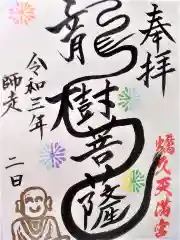 奉拝
龍樹菩薩
令和三年
師走
二日
久天満宮